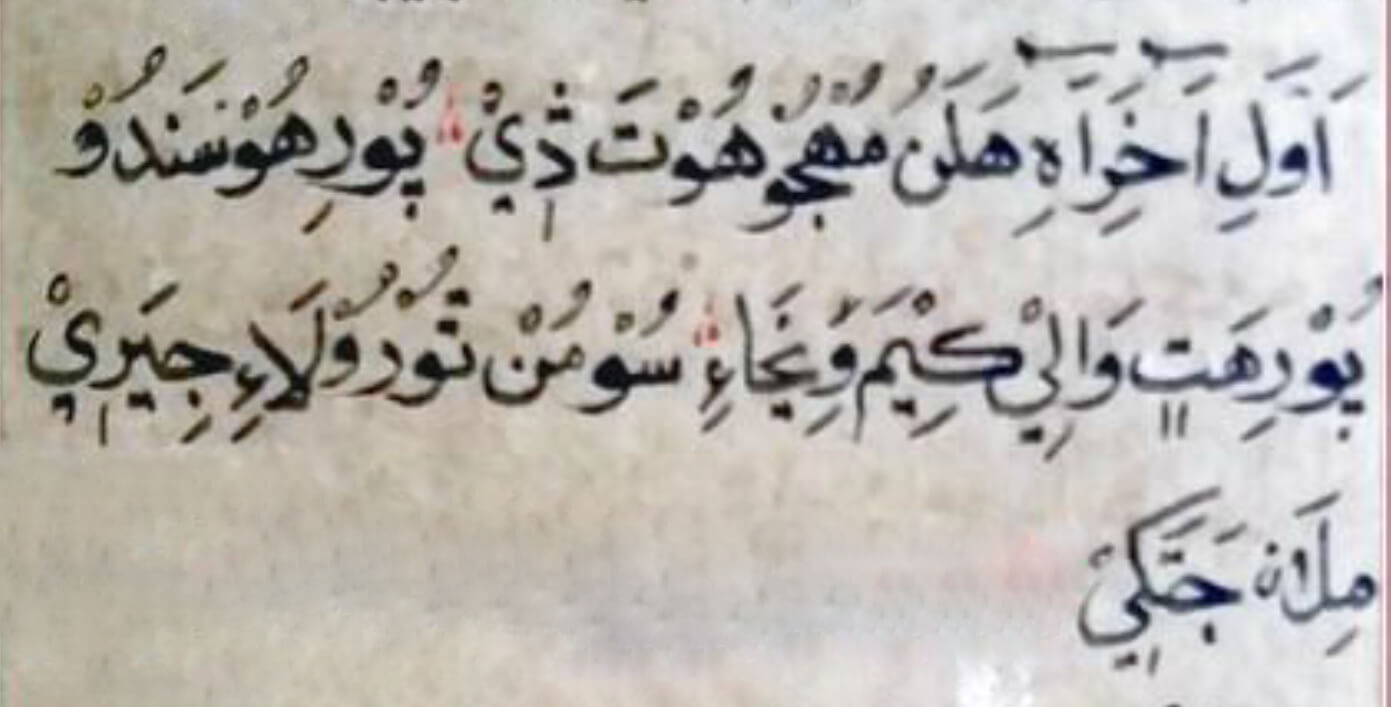 اَوَّلِ اَخِرَاَهِ هَلَنُ مُهْجُو هُوْتَ ذِيْ پُوْرِ هُوْسَنْدُوْ
پُوْرِهَتٍ وَالِيْ كِيْمَ وَنِجَاءِ سُوْ مُنْ تُوْرُوْلَاءِ جِيَرِيْ
مِلَانْ جَتَكِيْ